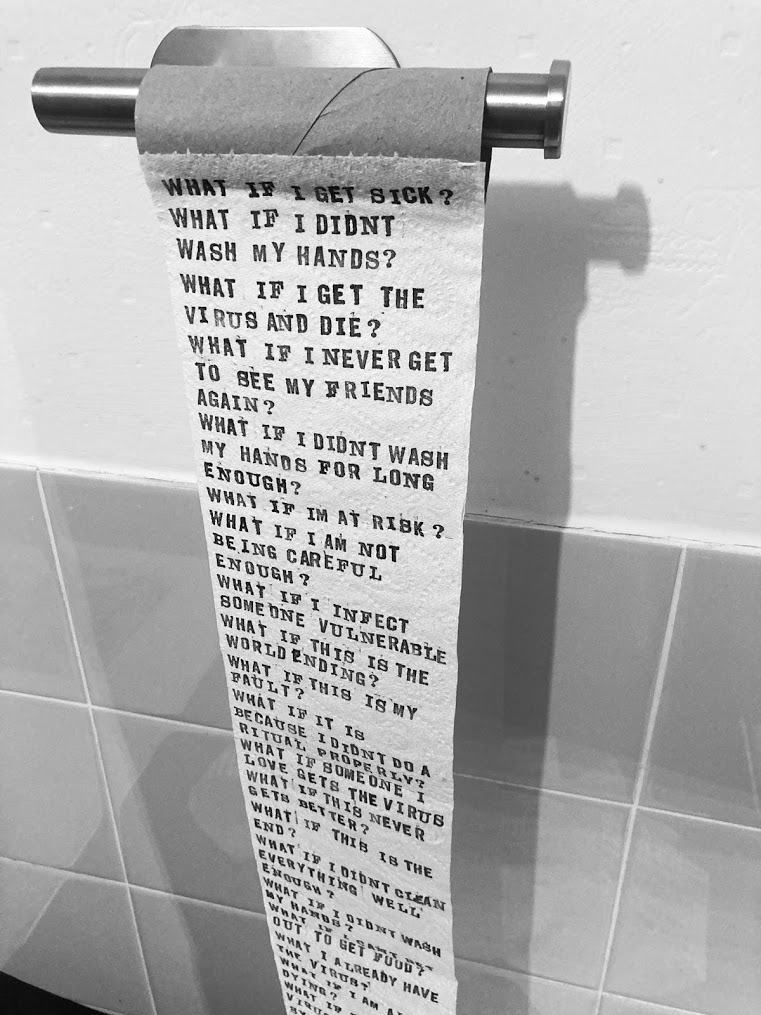 WHAT IF I GET SICK?
WHAT IF I DIDNT
WASH MY HANDS?
WHAT IF I GET THE
VIRUS AND DIE?
WHAT IF I NEVER GET
TO SEE MY FRIENDS
AGAIN?
WHAT IF I DIDNT WASH
MY HANDS FOR LONG
ENOUGH?
WHAT IF IM AT RISK?
WHAT IF I AM NOT
BEING CAREFUL
ENOUGH?
WHAT IF I INFECT
SOMEONE VULNERABLE
WHAT IF THIS IS THE
WORLD ENDING?
WHAT IF THIS IS MY
FAULT?
WHAT IF IT IS
BECAUSE I DIDNT DO A
RITUAL PROPERLY?
WHAT IF SOMEONE I
LOVE GETS THE VIRUS
WHAT IF THIS NEVER
GETS BETTER?
WHAT IF THIS IS THE
END?
WHAT IF I DIDNT CLEAN
EVERYTHING WELL
ENOUGH?
WHAT IF I DIDNT WASH
MY HANDS?
WHAT IF I
OUT TO GET FOOD?
WHAT I ALREADY HAVE
THE VIRUS?
WHAT IF I AM
DYING?
WHAT IF